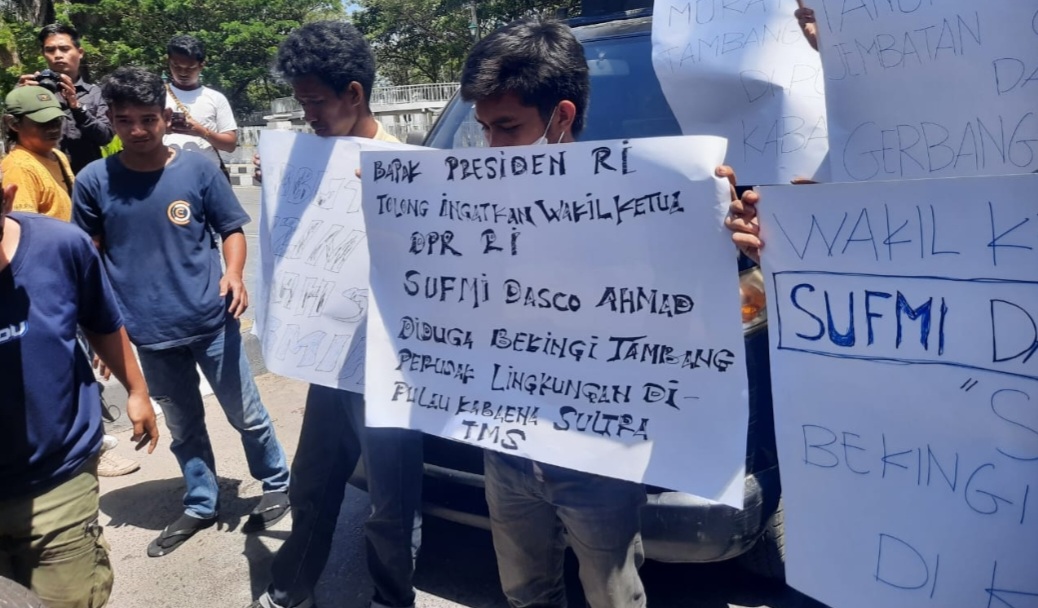 BAPAK PRESIDEN RI
TOLONG INGATKAN WAKIL KETUA
DPR RI
SUFMI DASCO AHMAD
DIDUGA BEKINGI TAMBANG
PERUSAK LINGKUNGAN DI-
PULAU KABAENA SULTRA
TMS
TAMBANG
DI
KABA
JEMBATAN
DA
GERBANG
WAKIL K
SUFMI DA
"S
BEKINGI
DI K